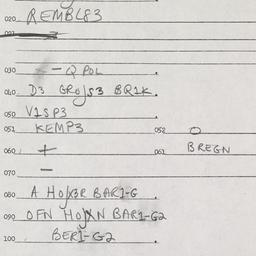 020 REMBL83
021
030 - Q POL .
040 D3 GROJS3 BRIK .
050 VISP3
051 KEMP3 052 O
060 + 061 BREGN
070 -
080 A HOXBR BARI-G .
090 OFN HOXN BARI-G2
100 BERI-G2 .